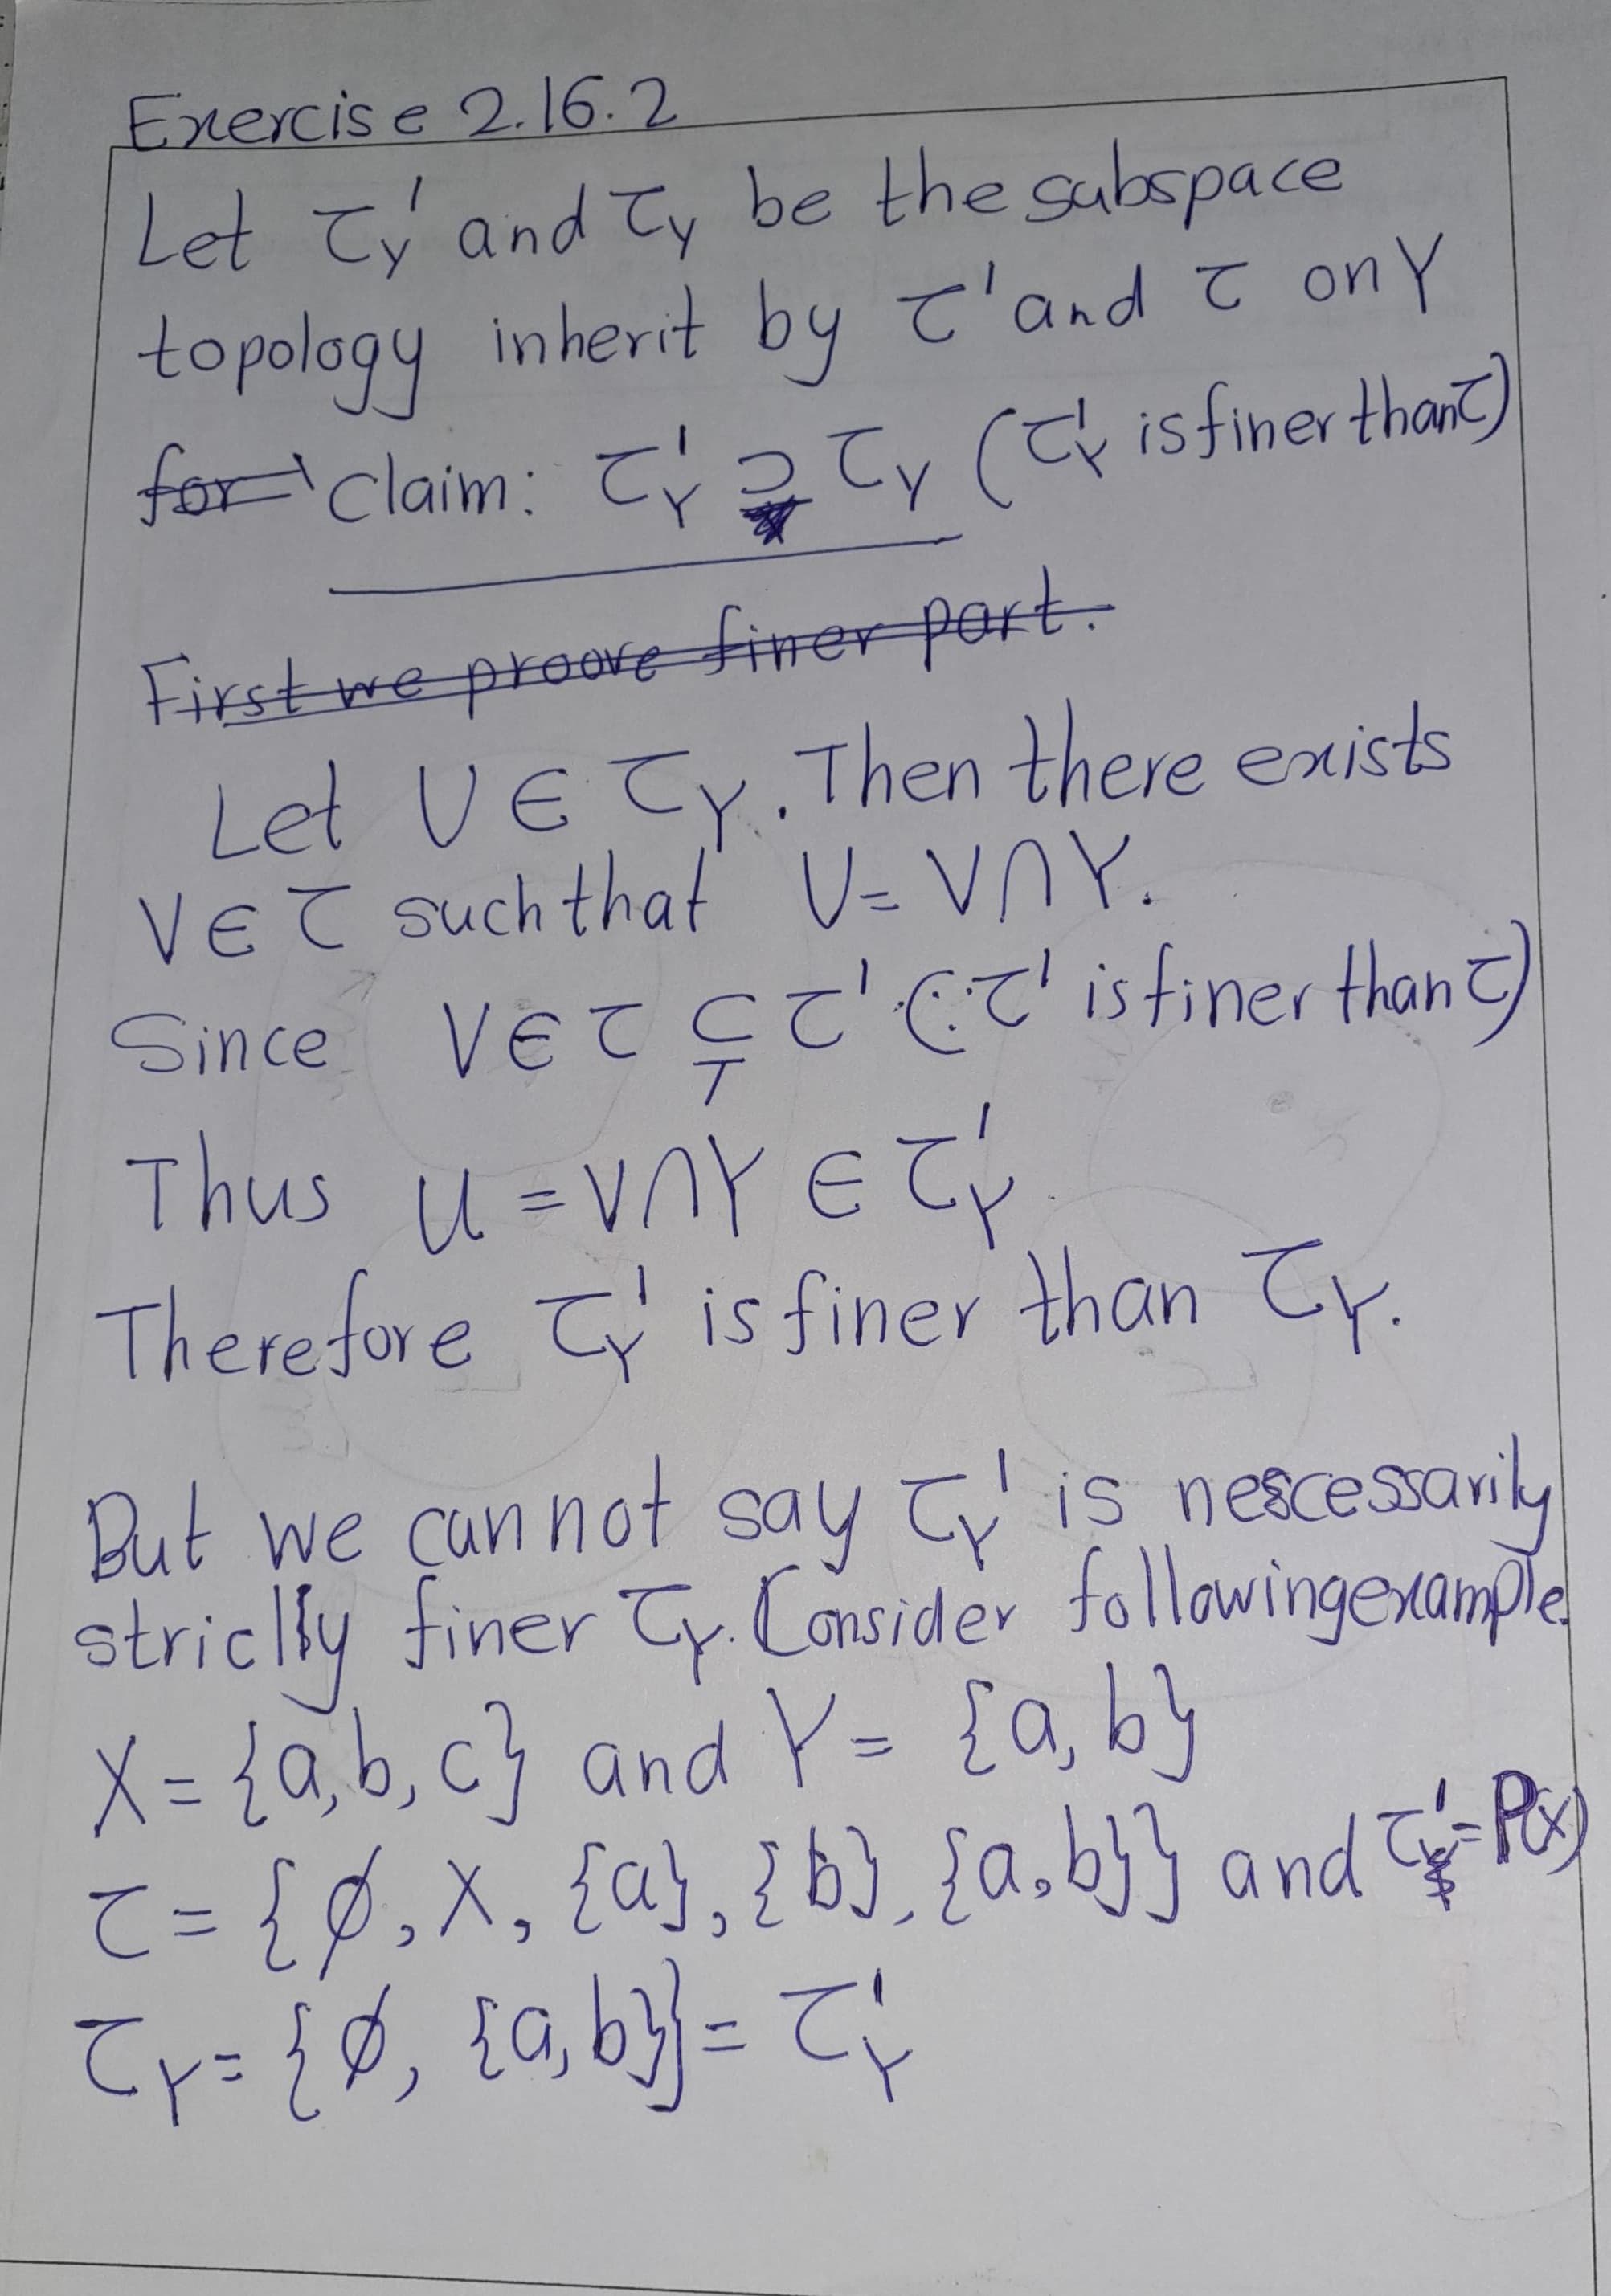 Exercise 2.16.2
Let τ_Y' and τ_Y be the subspace
topology inherit by τ' and τ on Y
for claim: τ'_Y ⊇ τ_Y (τ'_Y is finer than τ)
First we proove finer part.
Let U ∈ τ_Y. Then there exists
V ∈ τ such that U = V ∩ Y.
Since V ∈ τ ⊊ τ' (∵ τ' is finer than τ)
Thus U = V ∩ Y ∈ τ'_Y
Therefore τ'_Y is finer than τ_Y.
But we can not say τ_Y' is nescessarily
striclly finer τ_Y. Consider following example.
X = {a, b, c} and Y = {a, b}
τ = {∅, X, {a}, {b}, {a, b}} and τ' = P(X)
τ_Y = {∅, {a, b}} = τ'_Y